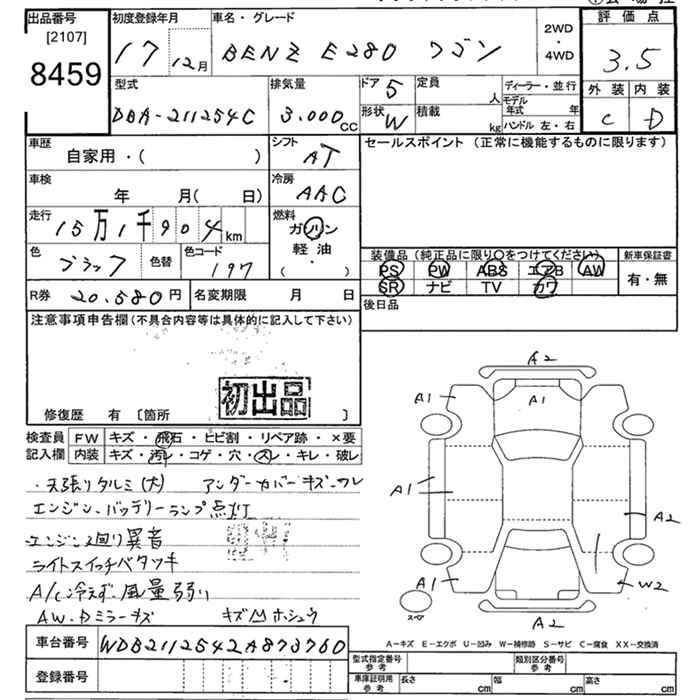 出品番号
[2107]
8459
初度登録年月
17 12月
車名・グレード
BENZ E280 ワゴン
2WD
・
4WD
評価点
3.5
外装 内装
C D
型式
DBA-211254C
排気量
3.000cc
ドア 5
形状 W
定員 人
積載 kg
ディーラー・並行
モデル年式 年
ハンドル 左・右
車歴
自家用・( )
シフト
AT
セールスポイント (正常に機能するものに限ります)
車検
年 月( 日)
冷房
AAC
走行
15万1千904km
燃料
ガソリン
・
軽油
・
( )
色
ブラック
色替
色コード
197
装備品(純正品に限り〇をつけてください)
PS PW ABS エアB AW
SR ナビ TV カワ
新車保証書
有・無
R券 20.580円
名変期限 月 日
後日品
注意事項申告欄(不具合内容等は具体的に記入して下さい)
初出品
修復歴 有 〔箇所 〕
検査員記入欄
FW キズ・飛石・ヒビ割・リペア跡・×要
内装 キズ・汚レ・コゲ・穴・スレ・キレ・破レ
・天張りタルミ(大) アンダーカバーキズ・ワレ
エンジン、バッテリーランプ点灯
エンジン廻り異音
ライトスイッチベタツキ
A/C冷えず、風量弱い
AW.Dミラーキズ
A2
A1
A1
A1
A2
A1
W2
スペア
A2
A－キズ E－エクボ U－凹み W－補修跡 S－サビ C－腐食 XX－交換済
車台番号 WDB2112542A873760
登録番号
型式指定番号参考
類別区分番号参考
車庫証明用参考
長さ cm
幅 cm
高さ cm